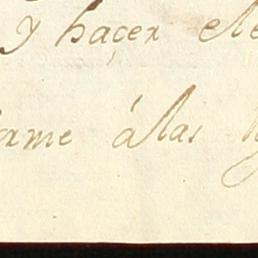 y haçer ele
rme á las